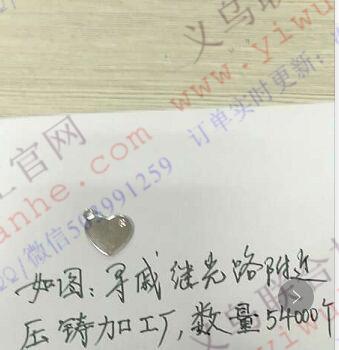 义乌联
www.yiwu
订单实时更新：
工官网
anhe.com
QQ/微信593991259
如图：寻戚继光路附近
压铸加工厂，数量54000个
义乌联合